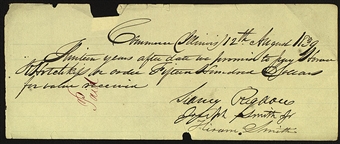 Commerce Illinois 12th August 1839
Nineteen years after date we promise to pay Horace
R Hotchkiss or order Fifteen Hundred Dollars
for value received
Sidney Rigdon
Joseph Smith Jr
Hiram Smith